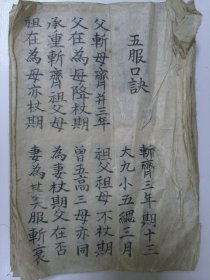 五服口訣
斬齊三年期十三
大九小五緦三月
祖父祖母不杖期
曾五高三母亦同
為妻杖期父在否
妻為其夫服斬衰
父斬母齊并三年
父在為母降杖期
承重斬齊祖父母
祖在為母亦杖期